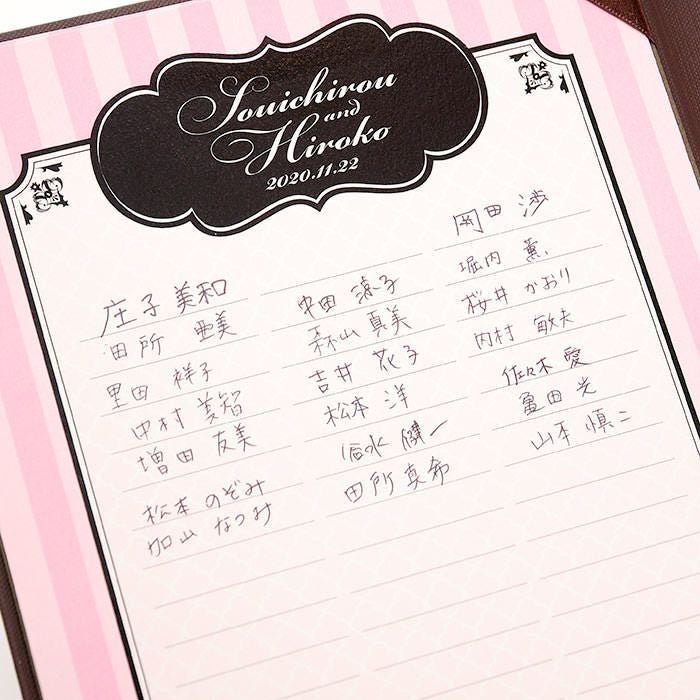 Souichirou
and
Hiroko
2020.11.22
庄子 美和
田所 亜美
里田 祥子
中村 美智
増田 友美
松本 のぞみ
加山 なつみ
中田 涼子
森山 真美
吉井 花子
松本 洋
健一
田所 真希
岡田 渉
堀内 薫
桜井 かおり
内村 敏夫
佐々木 愛
亀田 光
山本 慎二